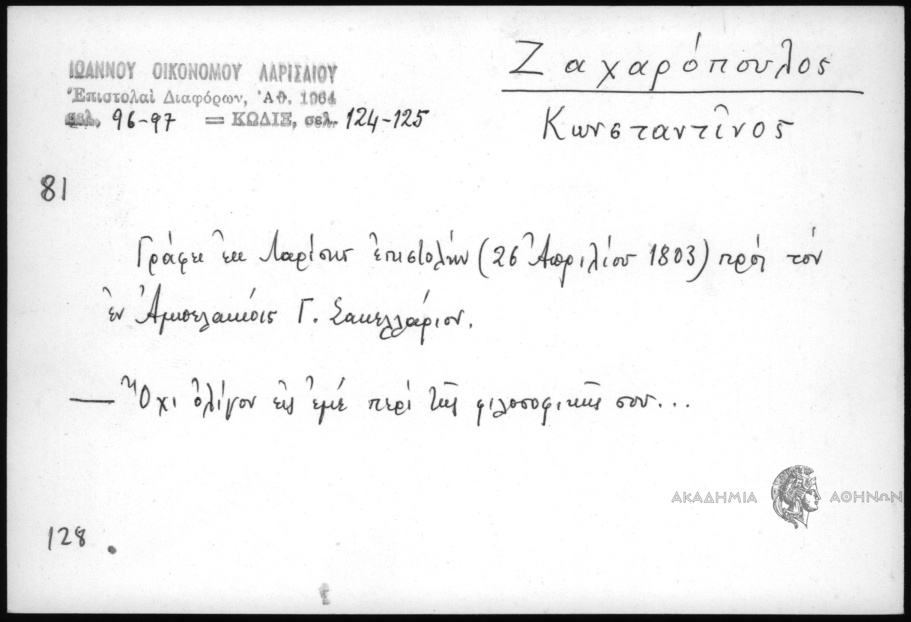 ΙΩΑΝΝΟΥ ΟΙΚΟΝΟΜΟΥ ΛΑΡΙΣΑΙΟΥ
Ἐπιστολαὶ Διαφόρων, Ἀθ. 1964
σελ. 96-97 = ΚΩΔΙΞ, σελ. 124-125
Ζαχαρόπουλος
Κωνσταντῖνος
81
Γράφει ἐκ Λαρίσης ἐπιστολήν (26 Ἀπριλίου 1803) πρός τόν
ἐν Ἀμπελακίοις Γ. Σακελλάριον.
— Ὄχι ὀλίγον εἰς ἐμέ περί τῆς φιλοσοφικῆς σου...
ΑΚΑΔΗΜΙΑ ΑΘΗΝΩΝ
128.